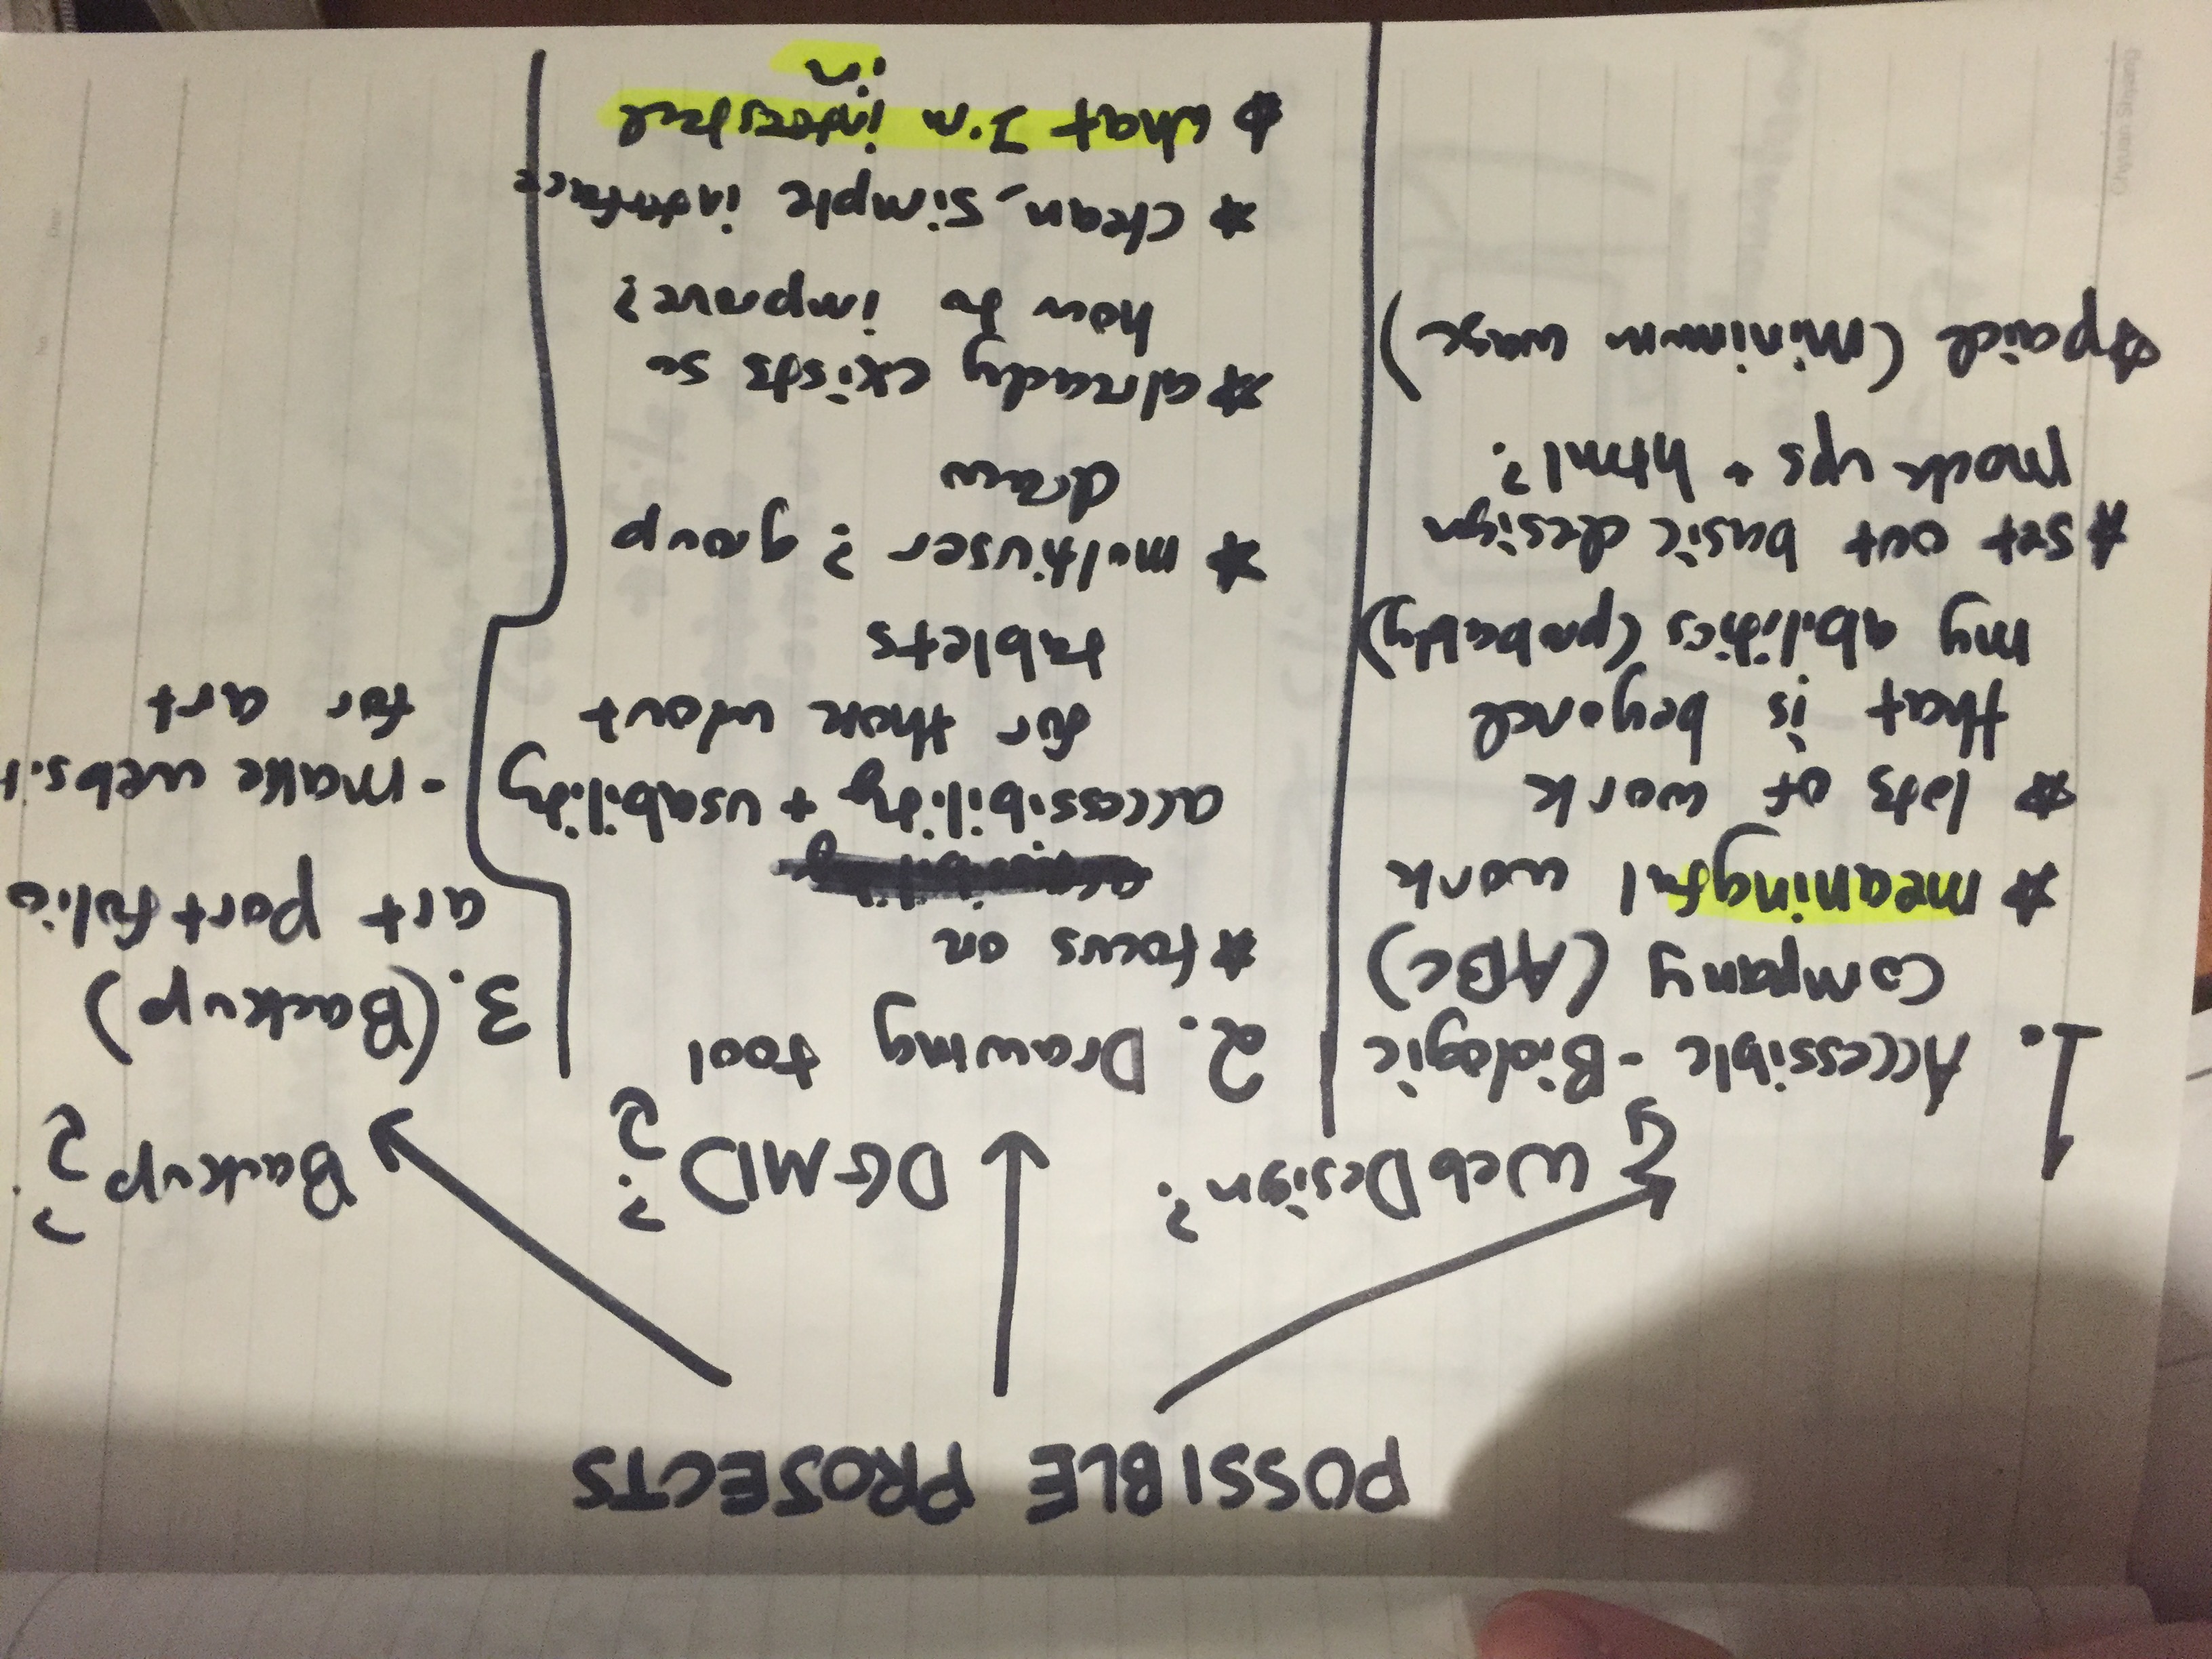 POSSIBLE PROJECTS
Web Design?
1. Accessible-Biologic
Company (ABC)
* meaningful work
* lots of work
that is beyond
my abilities (probably)
* set out basic design
mock ups + html?
* paid (minimum wage)
DGMD?
2. Drawing tool
* focus on
accessibility + usability
for those w/out
tablets
* multiuser? group
draw
* already exists so
how to improve?
* clean, simple interface
* what I'm interested
in
Backup?
3. (Backup)
art portfolio
- make websit
for art
No.
Date
Chyuan Shyang